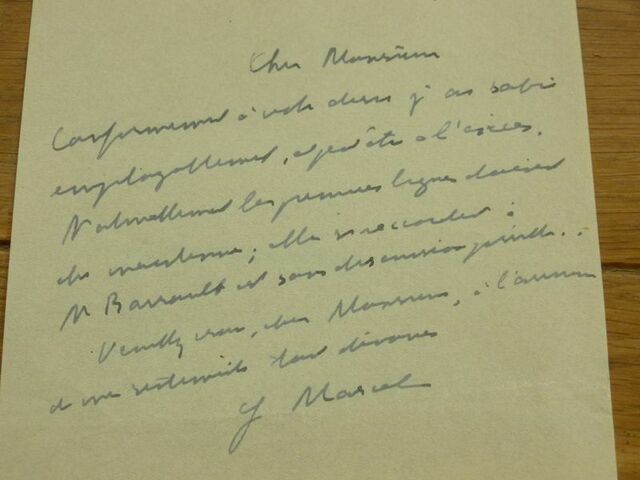 Cher Monsieur
Conformément à votre désir j'ai sabré
impitoyablement, et peut-être à l'excès.
Naturellement les premières lignes doivent
être maintenues; elles se raccordent à
M Barrault est sans discussion possible.
Veuillez croire, cher Monsieur, à l'assurance
de mes sentiments tout dévoués
G Marcel